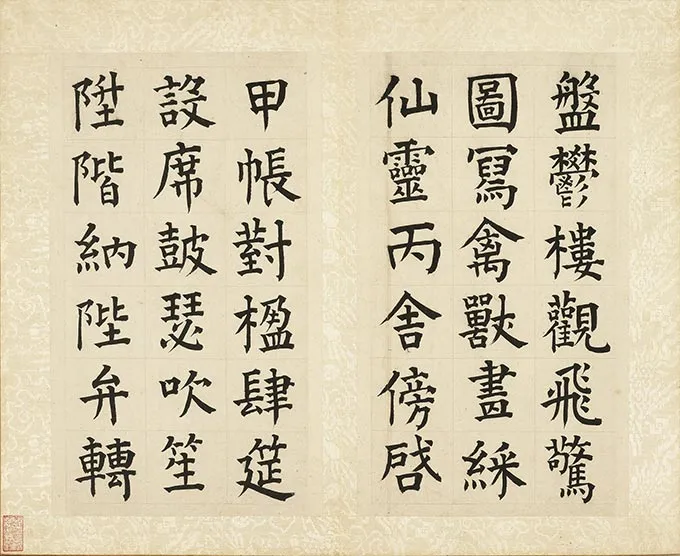 盤鬱樓觀飛驚
圖冩禽獸畫綵
仙靈丙舍傍啓
甲帳對楹肆筵
設席皷瑟吹笙
陞階納陛弁轉